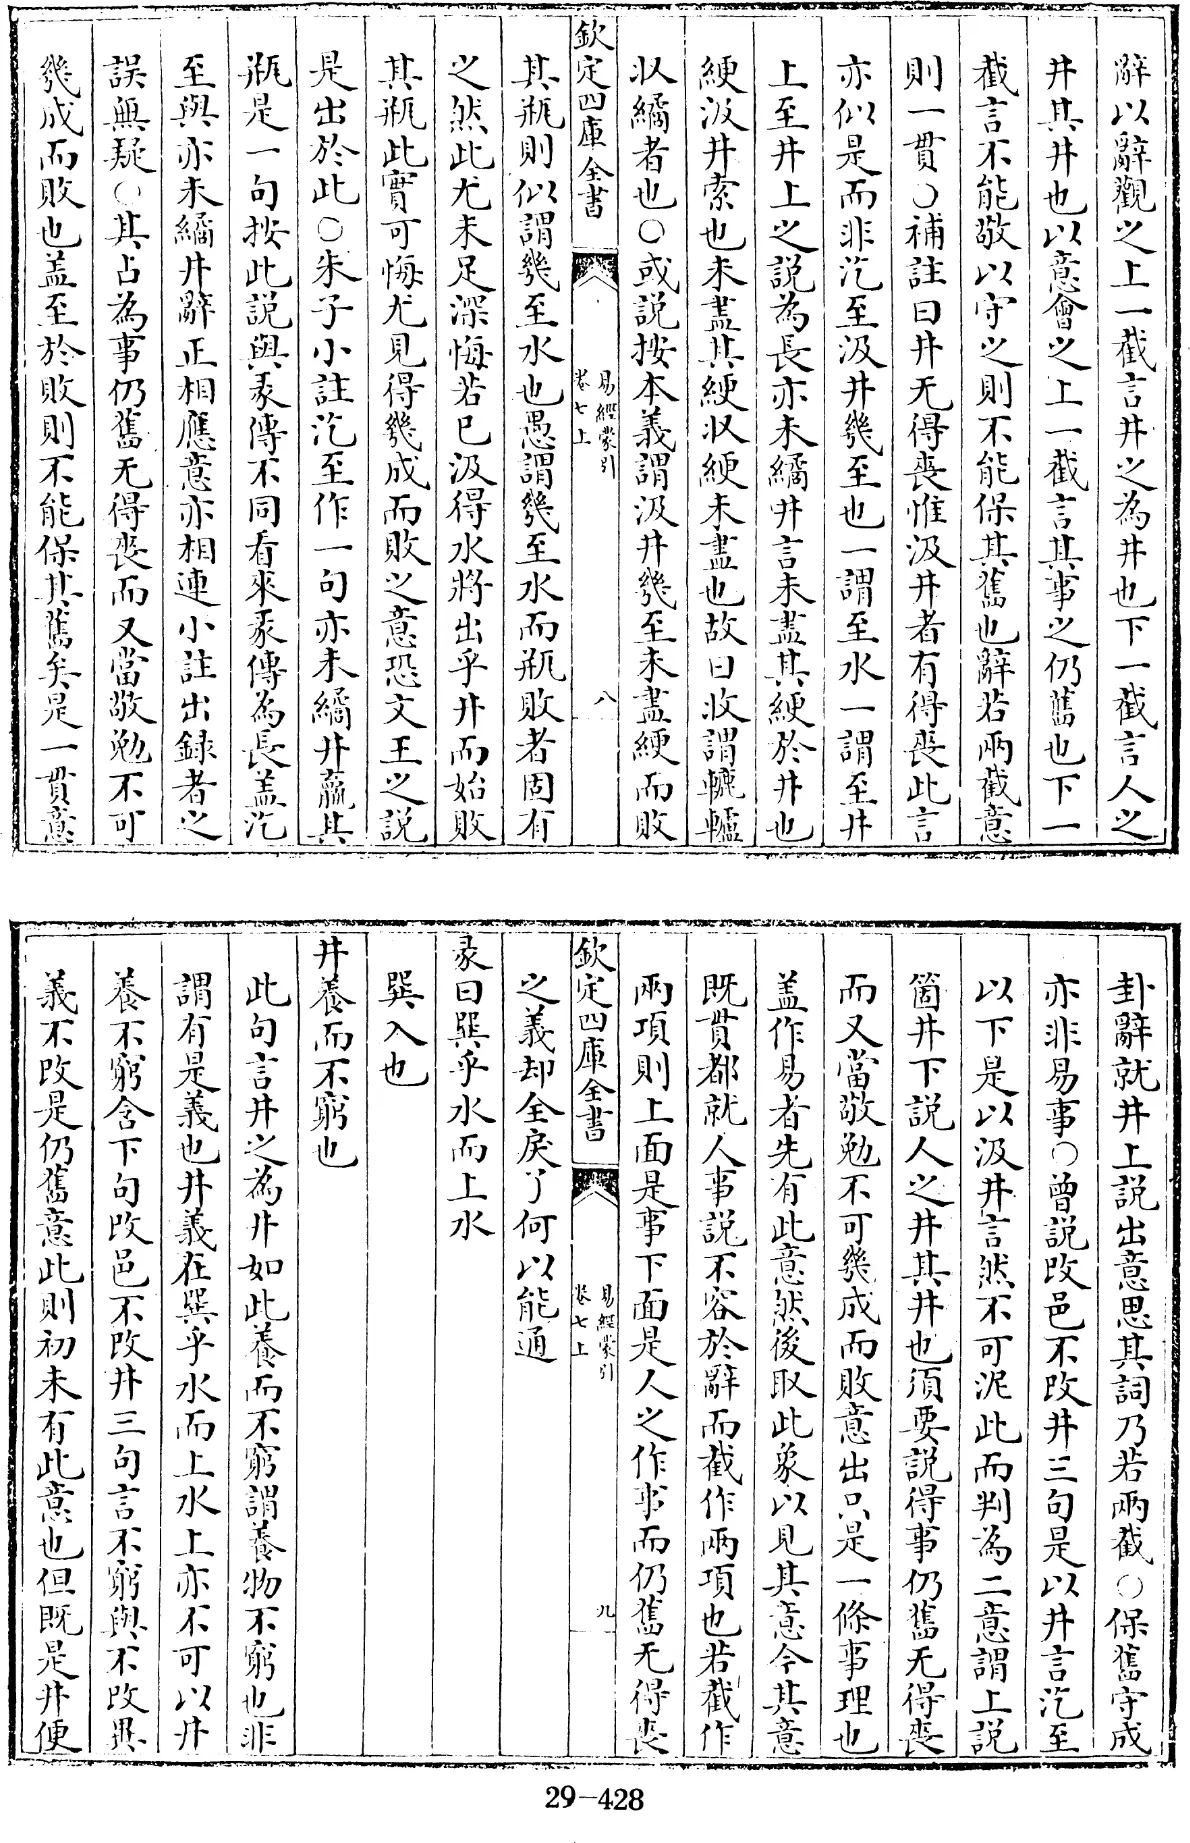 辭以辭觀之上一截言井之為井也下一截言人之
井其井也以意會之上一截言其事之仍舊也下一
截言不能敬以守之則不能保其舊也辭若兩截意
則一貫○補註曰井无得喪惟汲井者有得喪此言
亦似是而非汔至汲井幾至也一謂至水一謂至井
上至井上之説為長亦未繘井言未盡其綆於井也
綆汲井索也未盡其綆収綆未盡也故曰收謂轆轤
収繘者也○或説按本義謂汲井幾至未盡綆而敗
欽定四庫全書
易經蒙引
卷七上
八
其瓶則似謂幾至水也愚謂幾至水而瓶敗者固有
之然此尤未足深悔若已汲得水將出乎井而始敗
其瓶此實可悔尤見得幾成而敗之意恐文王之説
是出於此○朱子小註汔至作一句亦未繘井羸其
瓶是一句按此説與彖傳不同看來彖傳為長盖汔
至與亦未繘井辭正相應意亦相連小註出録者之
誤無疑○其占為事仍舊无得喪而又當敬勉不可
幾成而敗也盖至於敗則不能保其舊矣是一貫意
卦辭就井上説出意思其詞乃若兩截○保舊守成
亦非易事○曾説改邑不改井三句是以井言汔至
以下是以汲井言然不可泥此而判為二意謂上説
箇井下説人之井其井也須要説得事仍舊无得喪
而又當敬勉不可幾成而敗意出只是一條事理也
盖作易者先有此意然後取此象以見其意今其意
既貫都就人事説不容於辭而截作兩項也若截作
兩項則上面是事下面是人之作事而仍舊无得喪
欽定四庫全書
易經蒙引
卷七上
九
之義却全戾了何以能通
彖曰巽乎水而上水
巽入也
井養而不窮也
此句言井之為井如此養而不窮謂養物不窮也非
謂有是義也井義在巽乎水而上水上亦不可以井
養不窮含下句改邑不改井三句言不窮與不改異
義不改是仍舊意此則初未有此意也但既是井便
29-428